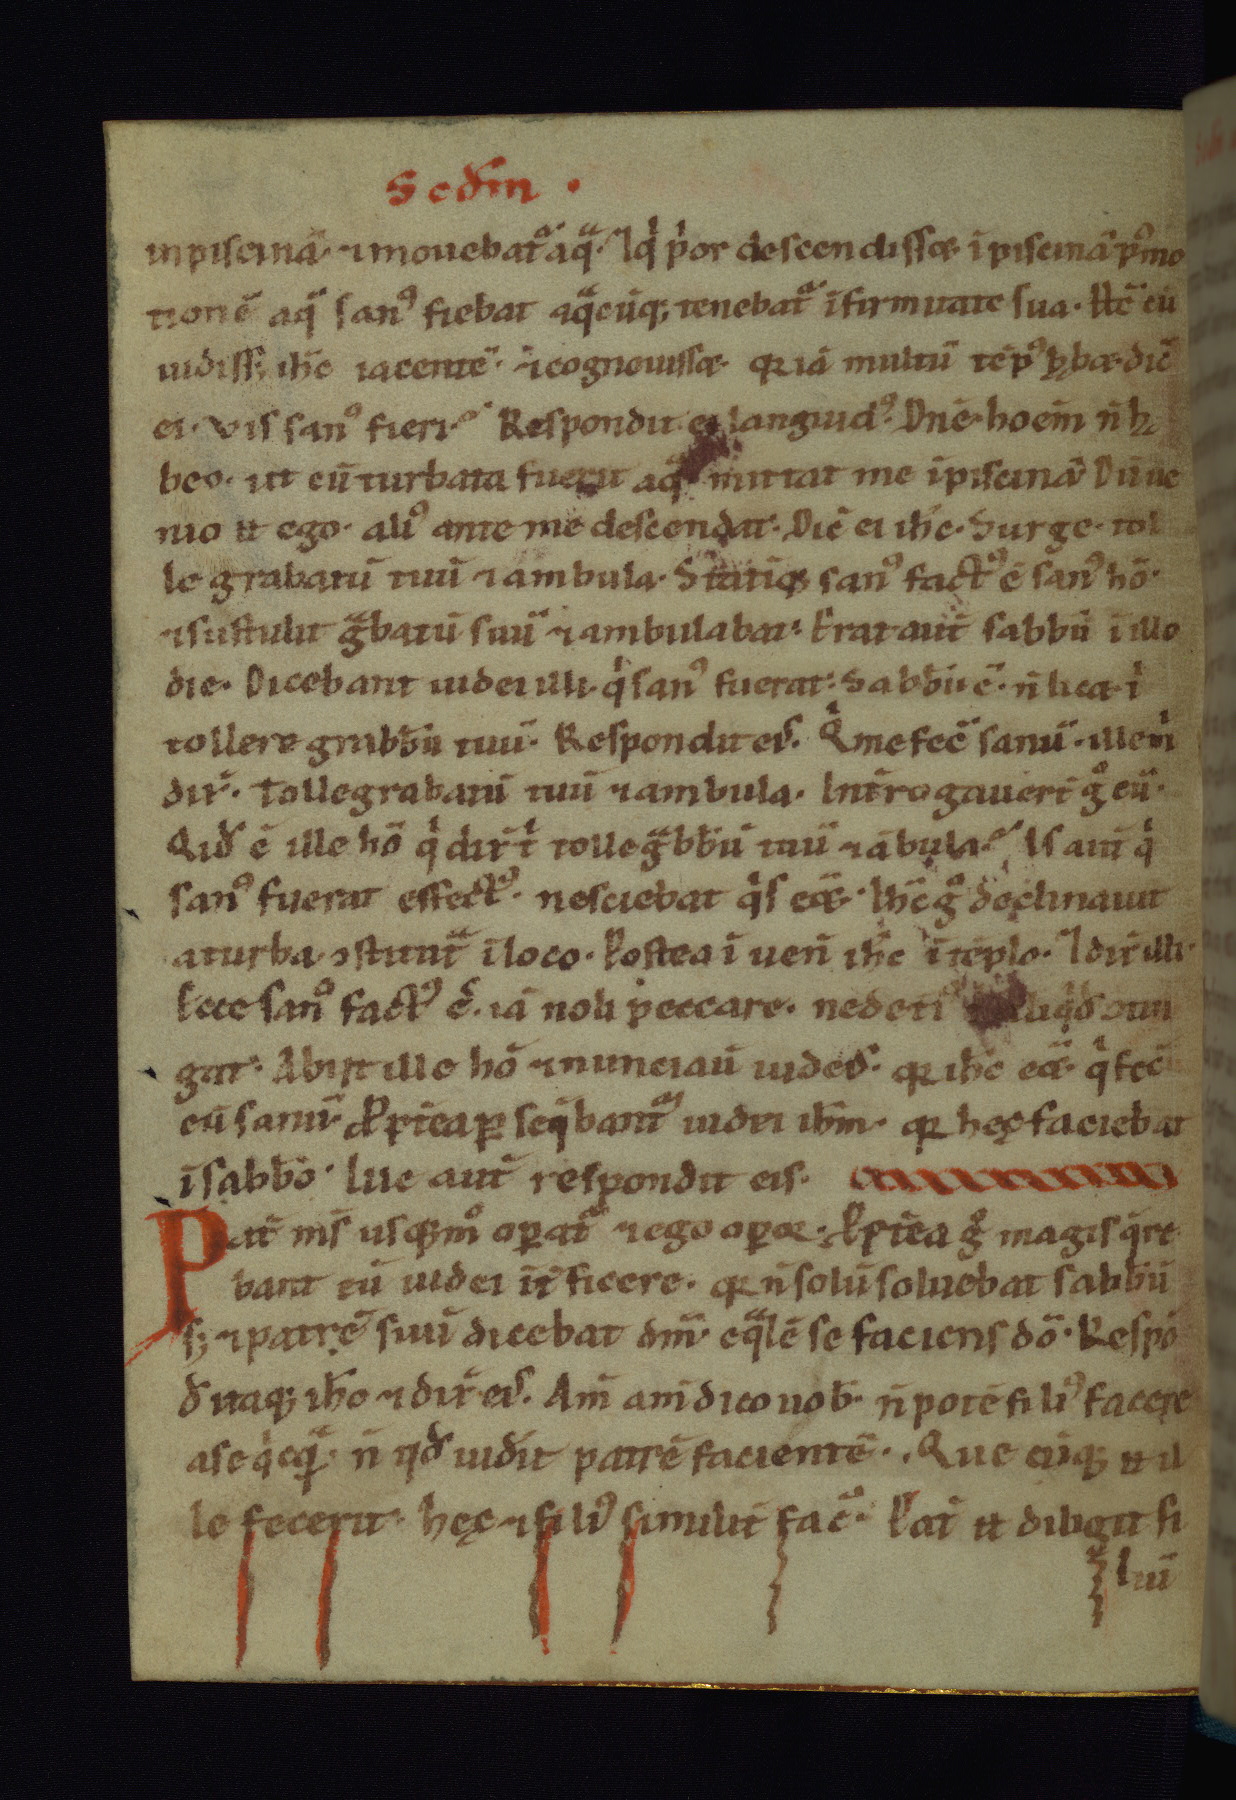 Scdm ·
in piscinā · ⁊ mouebat᷑ aq̄ · ⁊ q̇ p̓or descendissꝫ ī piscinā p⁹ mo
tionē aq̄ san⁹ fiebat aq̄cūqꝫ tenebat᷑ īfirmitate sua · Hc̄ cū
uidissꝫ ih̄c iacentē · ⁊ cognouissꝫ · qꝛ iā multū tēp⁹ hꝫ dic̄
ei · vis san⁹ fieri · Respondit ei languid⁹ · Dn̄e · hoēm n̄ ha
beo · ut cū turbata fuerit aq̄ mittat me ī piscinā · Dū ue
nio n̄ ego · ali⁹ ante me descendat · Dic̄ ei ih̄c · Surge · tol
le grabatū tuū ⁊ ambula · Statiqꝫ san⁹ fact⁹ ē san⁹ hō ·
⁊ sustulit g̃batū suū ⁊ ambulabat · Erat aut̄ sabbū ī illo
die · Dicebant iudei illi · q̇ san⁹ fuerat · Sabb̄ū ē · n̄ licꝫ t̓
tollere grabb̄ū tuū · Respondit eis̄ · Q̇ me fec̄ sanū · ille m̓
dix̄ · Tolle grabatū tuū ⁊ ambula · Int̄rogauert̄ g̊ eū ·
Qid̄ ē ille hō q̇ dix̄ t̓ tolle g̃bb̄ū tuū ⁊ ābula · Is aut̄ q̇
san⁹ fuerat effect⁹ · nesciebat q̇s eēt · Ih̄c g̊ declinauit
a turba ꝯstitut̄ ī loco · Postea īuen̄ ih̄c ī tēplo · ⁊ dix̄ illi ·
Ecce san⁹ fact⁹ ē · iā noli peccare · ne det̄i⁹ aliqd̄ ꝯtin
gat · Abiit ille hō ⁊ nunciau̅ iudeis̄ · qꝛ ih̄c eēt q̇ fec̄
eū sanū · Pp̄tea ꝑseq̄bant᷑ iudei ih̄m · qꝛ hęc faciebat
ī sabb̄o · Iħc aut̄ respondit eis ·
Pat̄ m̄s usqꝫ m̊ oꝑat᷑ ⁊ ego oꝑor · Pp̄tea g̊ magis q̄re
bant eū iudei īt̄ficere · qꝛ n̄ solū soluebat sabb̄ū
sꝫ ⁊ patrē suū dicebat dm̄ · eq̄lē se faciens dō · Respō
d̄ itaqꝫ ih̄c ⁊ dix̄ eis̄ · Am̄ am̄ dico uob̄ · n̄ potē fili⁹ facere
a se q̇cq̄ · n̄ qd̄ uid̄it patrē facientē · Que cūqꝫ n̄ il
le fecerit · hęc ⁊ fili⁹ similit̄ fac̄ · Pat̄ n̄ diligit fi
liū